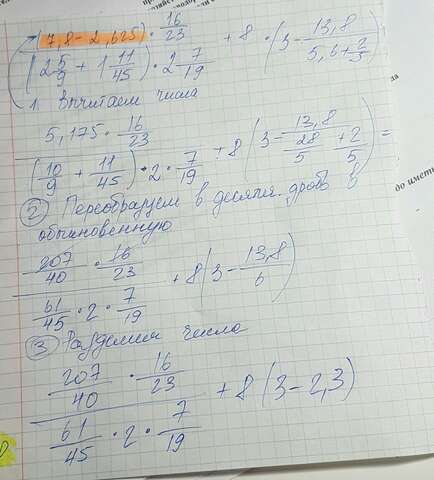 (7,8-2,625) · 16/23
(2 5/9 + 1 11/45) · 2 7/19 + 8 · (3 - 13,8/(5,6+2/5))
1 Вычитаем числа
5,175 · 16/23
(10/9 + 11/45) · 2 · 7/19 + 8 (3 - 13,8/(28/5 + 2/5)) =
② Переобразуем в десятич. дробь в
обыкновенную
207/40 · 16/23
61/45 · 2 · 7/19 + 8 (3 - 13,8/6)
③ Разделим числа
207/40 · 16/23
61/45 · 2 · 7/19 + 8 (3 - 2,3)
до имет